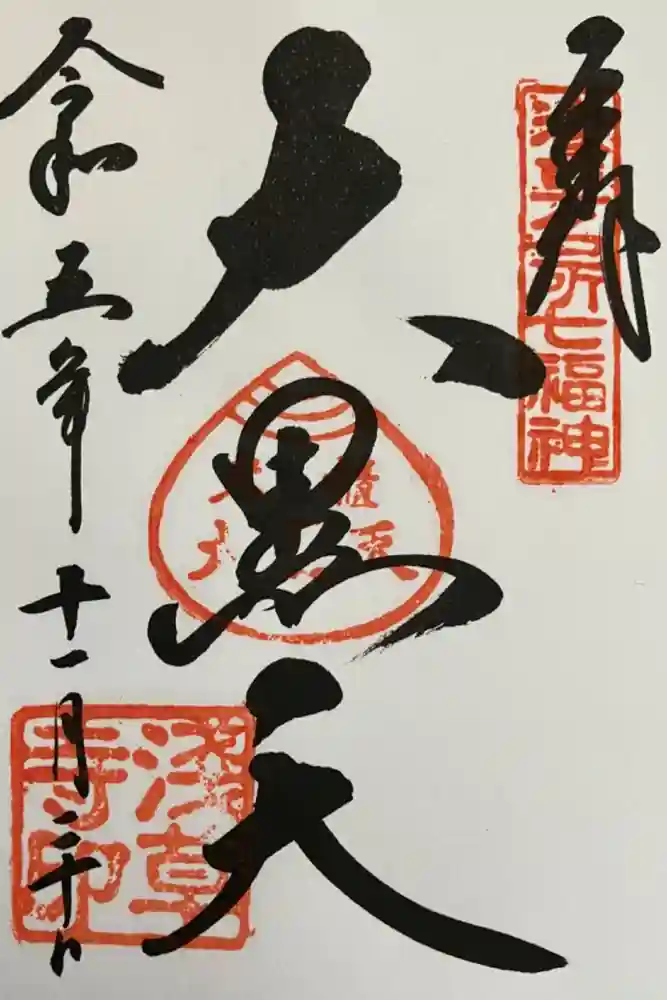 奉拝
浅草名所七福神
大黒天
令和五年十一月二十日
浅草
寺印